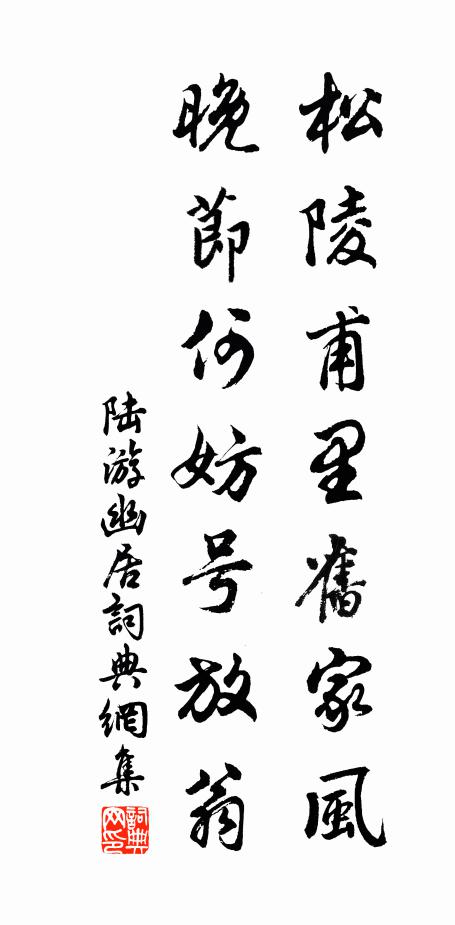 松陵甫里舊家風
晚節何妨号放翁
陆游幽居詞典網集
詞典
网印